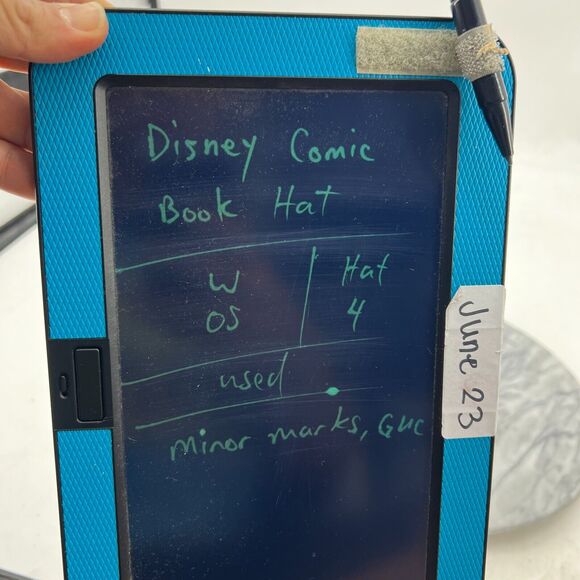 Disney Comic
Book Hat
W
OS
Hat
4
used
minor marks, GUC
June 23